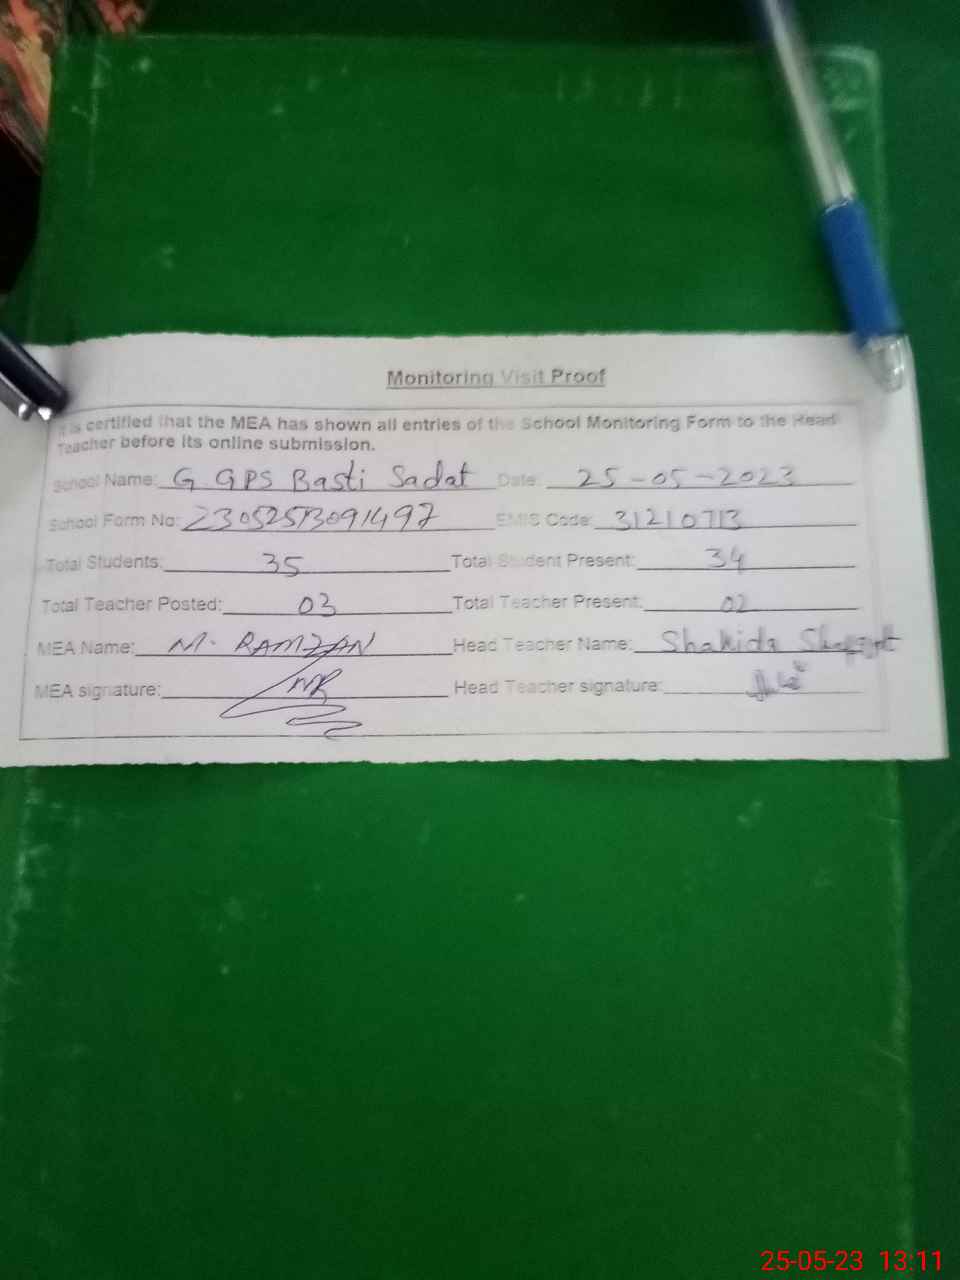 Monitoring Visit Proof
It is certified that the MEA has shown all entries of the School Monitoring Form to the Head
Teacher before its online submission.
School Name: G GPS Basti Sadat Date: 25-05-2023
School Form No: 23052513091497 EMIS Code: 31210713
Total Students: 35 Total Student Present: 34
Total Teacher Posted: 03 Total Teacher Present: 02
MEA Name: M. RAMZAN Head Teacher Name: Shahida
MEA signature: MR Head Teacher signature:
25-05-23 13:11